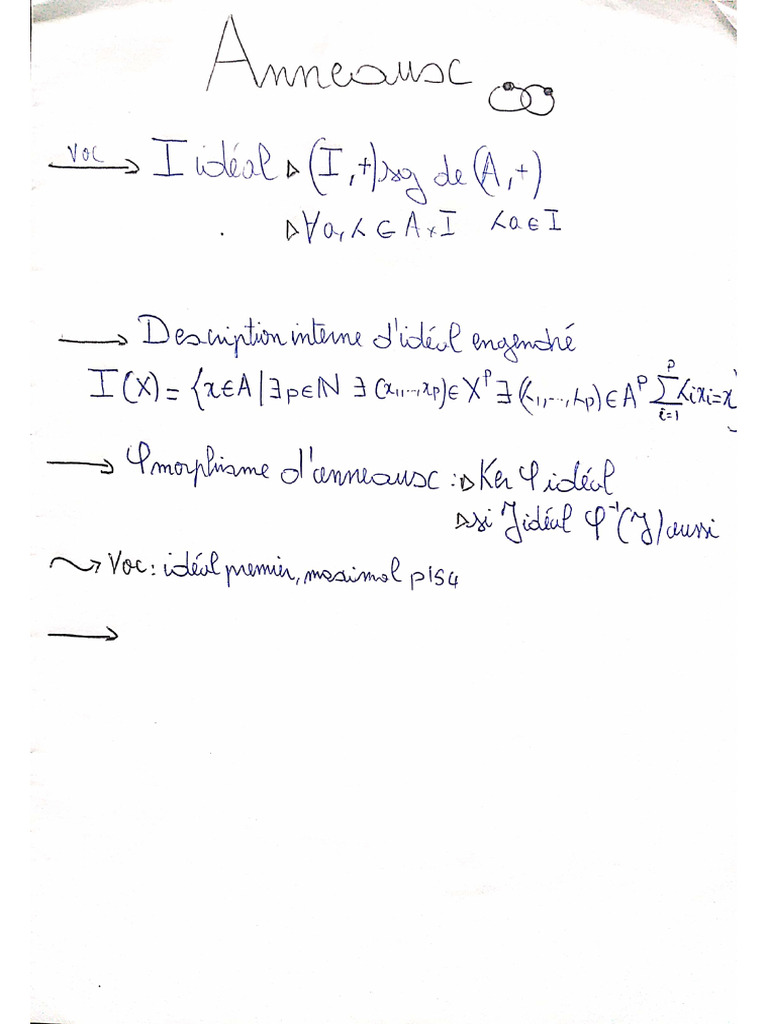 Anneaux
Voc → I idéal ▷ (I,+) sg de (A,+)
▷ ∀a, λ ∈ A × I λa ∈ I
→ Description interne d'idéal engendré
I(X) = {x∈A | ∃p∈ℕ ∃ (x₁,...,xp)∈X^p ∃ (λ₁,...,λp)∈A^p ∑_{i=1}^{p} λixi=x}
→ φ morphisme d'anneaux : ▷ Ker φ idéal
▷ si J idéal φ⁻¹(J) aussi
⤳ Voc : idéal premier, maximal p154
→